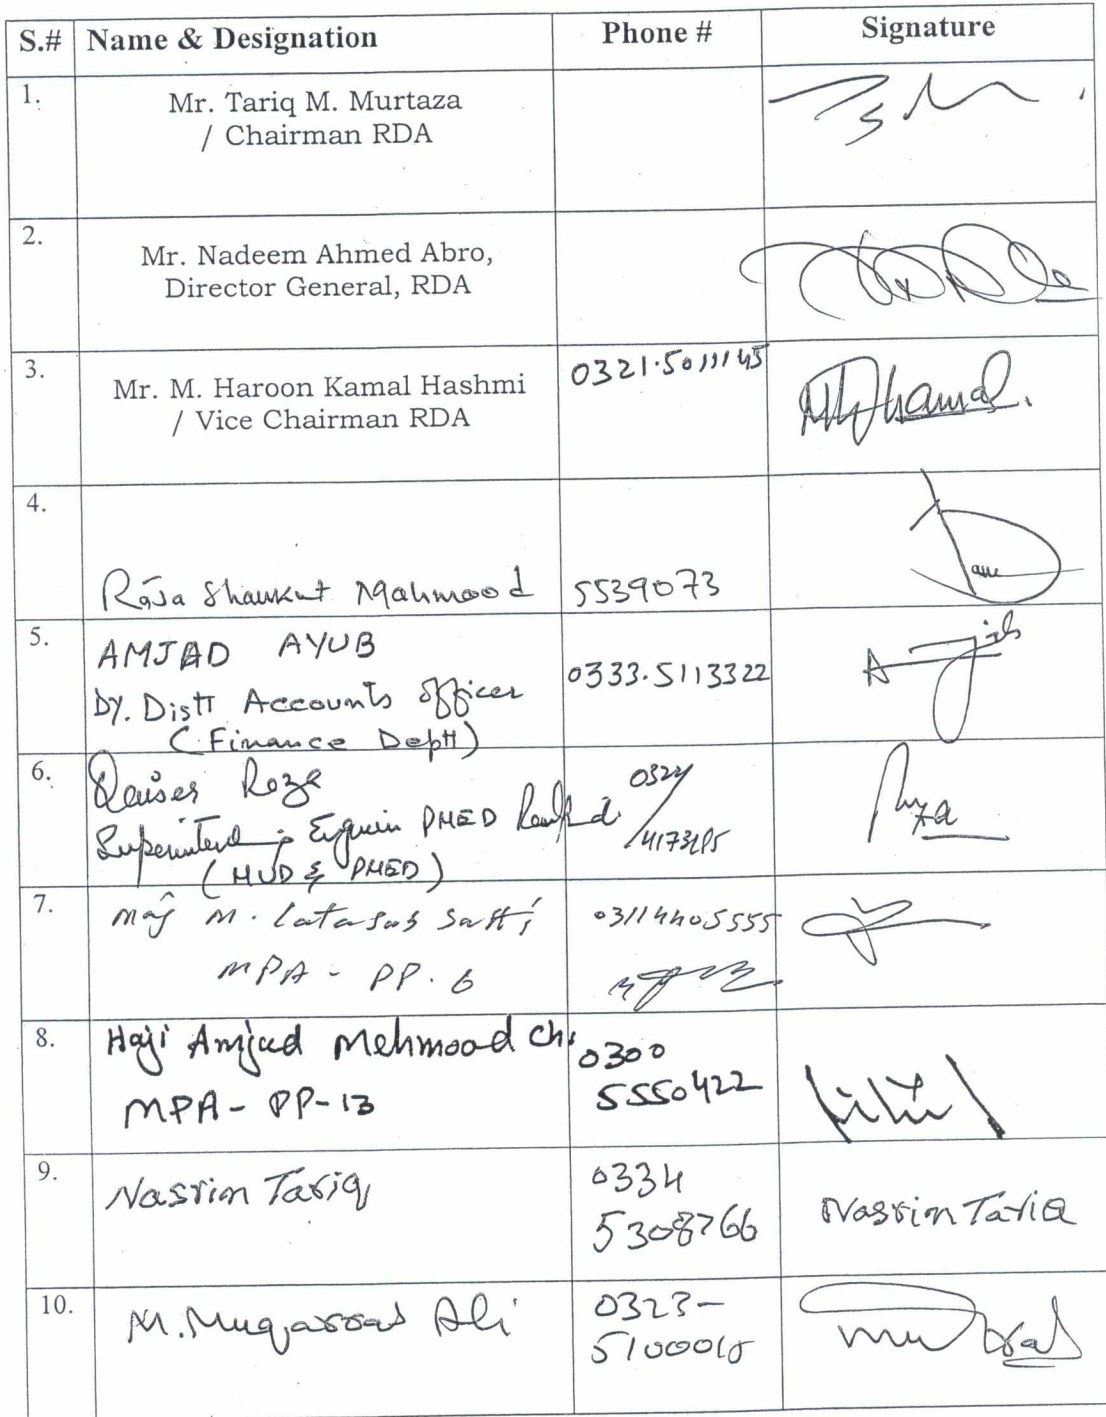 S.# Name & Designation Phone # Signature
1.
Mr. Tariq M. Murtaza
/ Chairman RDA
2.
Mr. Nadeem Ahmed Abro,
Director General, RDA
3.
Mr. M. Haroon Kamal Hashmi
/ Vice Chairman RDA
0321-5011145
4.
Raja Shaukat Mahmood 5539073
5.
AMJAD AYUB
Dy. Distt Accounts officer
(Finance Deptt)
0333-5113322
6.
Raza
PHED
(HUD & PHED)
0324
7.
Maj M. Latasab Satti
MPA - PP. 6
03114405555
8.
Haji Amjad Mehmood Ch.
MPA - PP-13
0300
5550422
9.
Nasrim Tariq
0334
5308766
Nasrim Tariq
10.
M. Muqarrab Ali
0323-